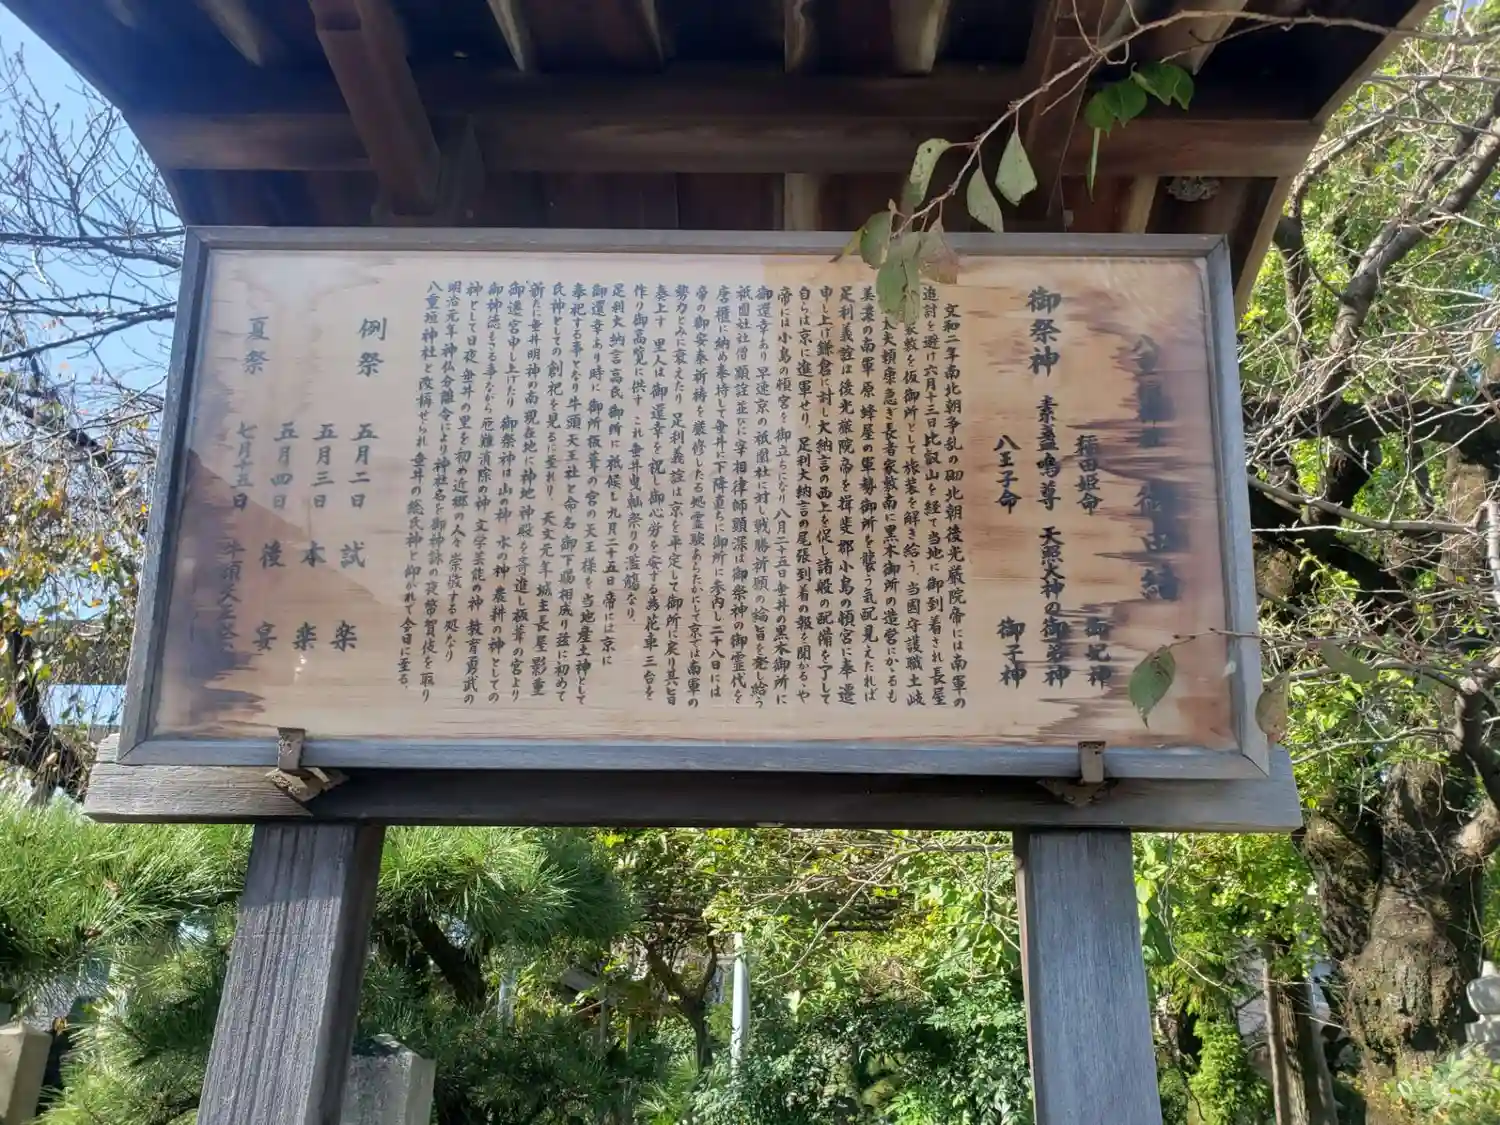 八重垣神社 御由緒
御祭神 素盞嗚尊 天照大神の御弟神
稲田姫命 御妃神
八王子命 御子神
文和二年南北朝争乱の砌北朝後光厳院帝には南軍の
追討を避け六月十三日比叡山を経て当地に御到着され長屋
家敷を仮御所として旅装を解き給う、当国守護職土岐
太夫頼康急ぎ長者家敷南に黒木御所の造営にかゝるも
美濃の南軍原蜂屋の軍勢御所を襲う気配見えたれば
足利義詮は後光厳院帝を揖斐郡小島の頓宮に奉遷
申し上げ鎌倉に討し大納言の西上を促し諸般の配備を了して
自らは京に進軍せり、足利大納言の尾張到着の報を聞かるゝや
帝には小島の頓宮を御立ちになり八月二十五日垂井の黒木御所に
御還幸あり早速京の祇園社に対し戦勝祈願の綸旨を発し給う
祇園社社僧顕詮並びに宰相律師顕深は御祭神の御霊代を
唐櫃に納め奉持して垂井に下降直ちに御所に参内し二十八日には
帝の御安泰祈祷を厳修したる処霊験あらたかにして京では南軍の
勢力とみに衰えたり、足利義詮は京を平定して御所に戻り其旨
奏上す 里人は御還幸を祝し御心労を安する為花車三台を
作り御高覧に供す、これ垂井曳𨏍祭りの濫觴なり、
足利大納言高氏御所に祗候し九月二十五日帝には京に
御還幸あり時に御所板葺の宮の天王様を当地産土神として
奉祀する事となり牛頭天王社と命名御下賜相成り茲に初めて
氏神としての創祀を見るに至れり、天文元年城主長屋影重
新たに垂井明神の南現在地に神地神殿を寄進し板葺の宮より
御遷宮申し上げたり、御祭神は山の神 水の神 農耕の神としての
御神徳もさる事ながら厄難消除の神 文学芸能の神 教育勇武の
神として日夜垂井の里を初め近郷の人々崇敬する処なり
明治元年神仏分離令により神社名を御神詠の夜幣賀伎を取り
八重垣神社と改稱せられ垂井の総氏神と仰がれて今日に至る、
例祭 五月二日 試楽
五月三日 本楽
五月四日 後宴
夏祭 七月十五日 牛頭天王祭